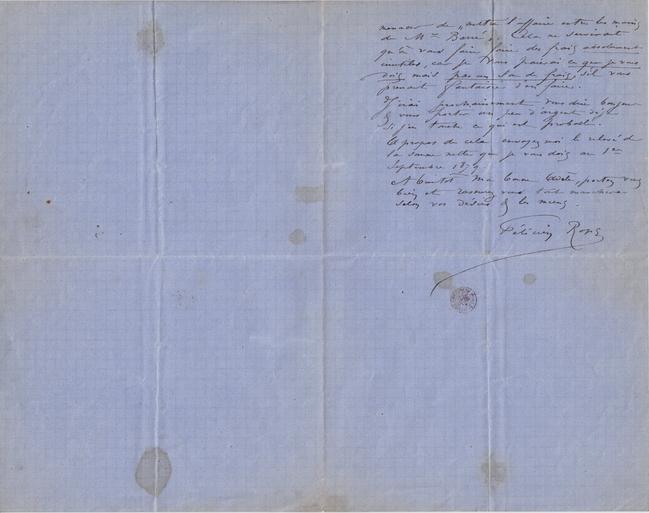 menacer de „mettre l'affaire entre les mains
de Mtre Barré„. Cela ne servirait
qu'à vous faire faire des frais absolument
inutiles, car je vous paierai ce que je vous
dois mais pas un sou de frais, s'il vous
prenait fantaisie d'en faire.
J'irai prochainement vous dire bonjour
& vous porter un peu d'argent si
si j'en touche ce qui est probable.
A propos de cela envoyez moi le relevé de
la somme nette que je vous dois au 1er
Septembre 1879
A bientôt Ma bonne portez vous
bien et rassurez vous tout marchera
selon vos désirs & les miens.
Félicien Rops